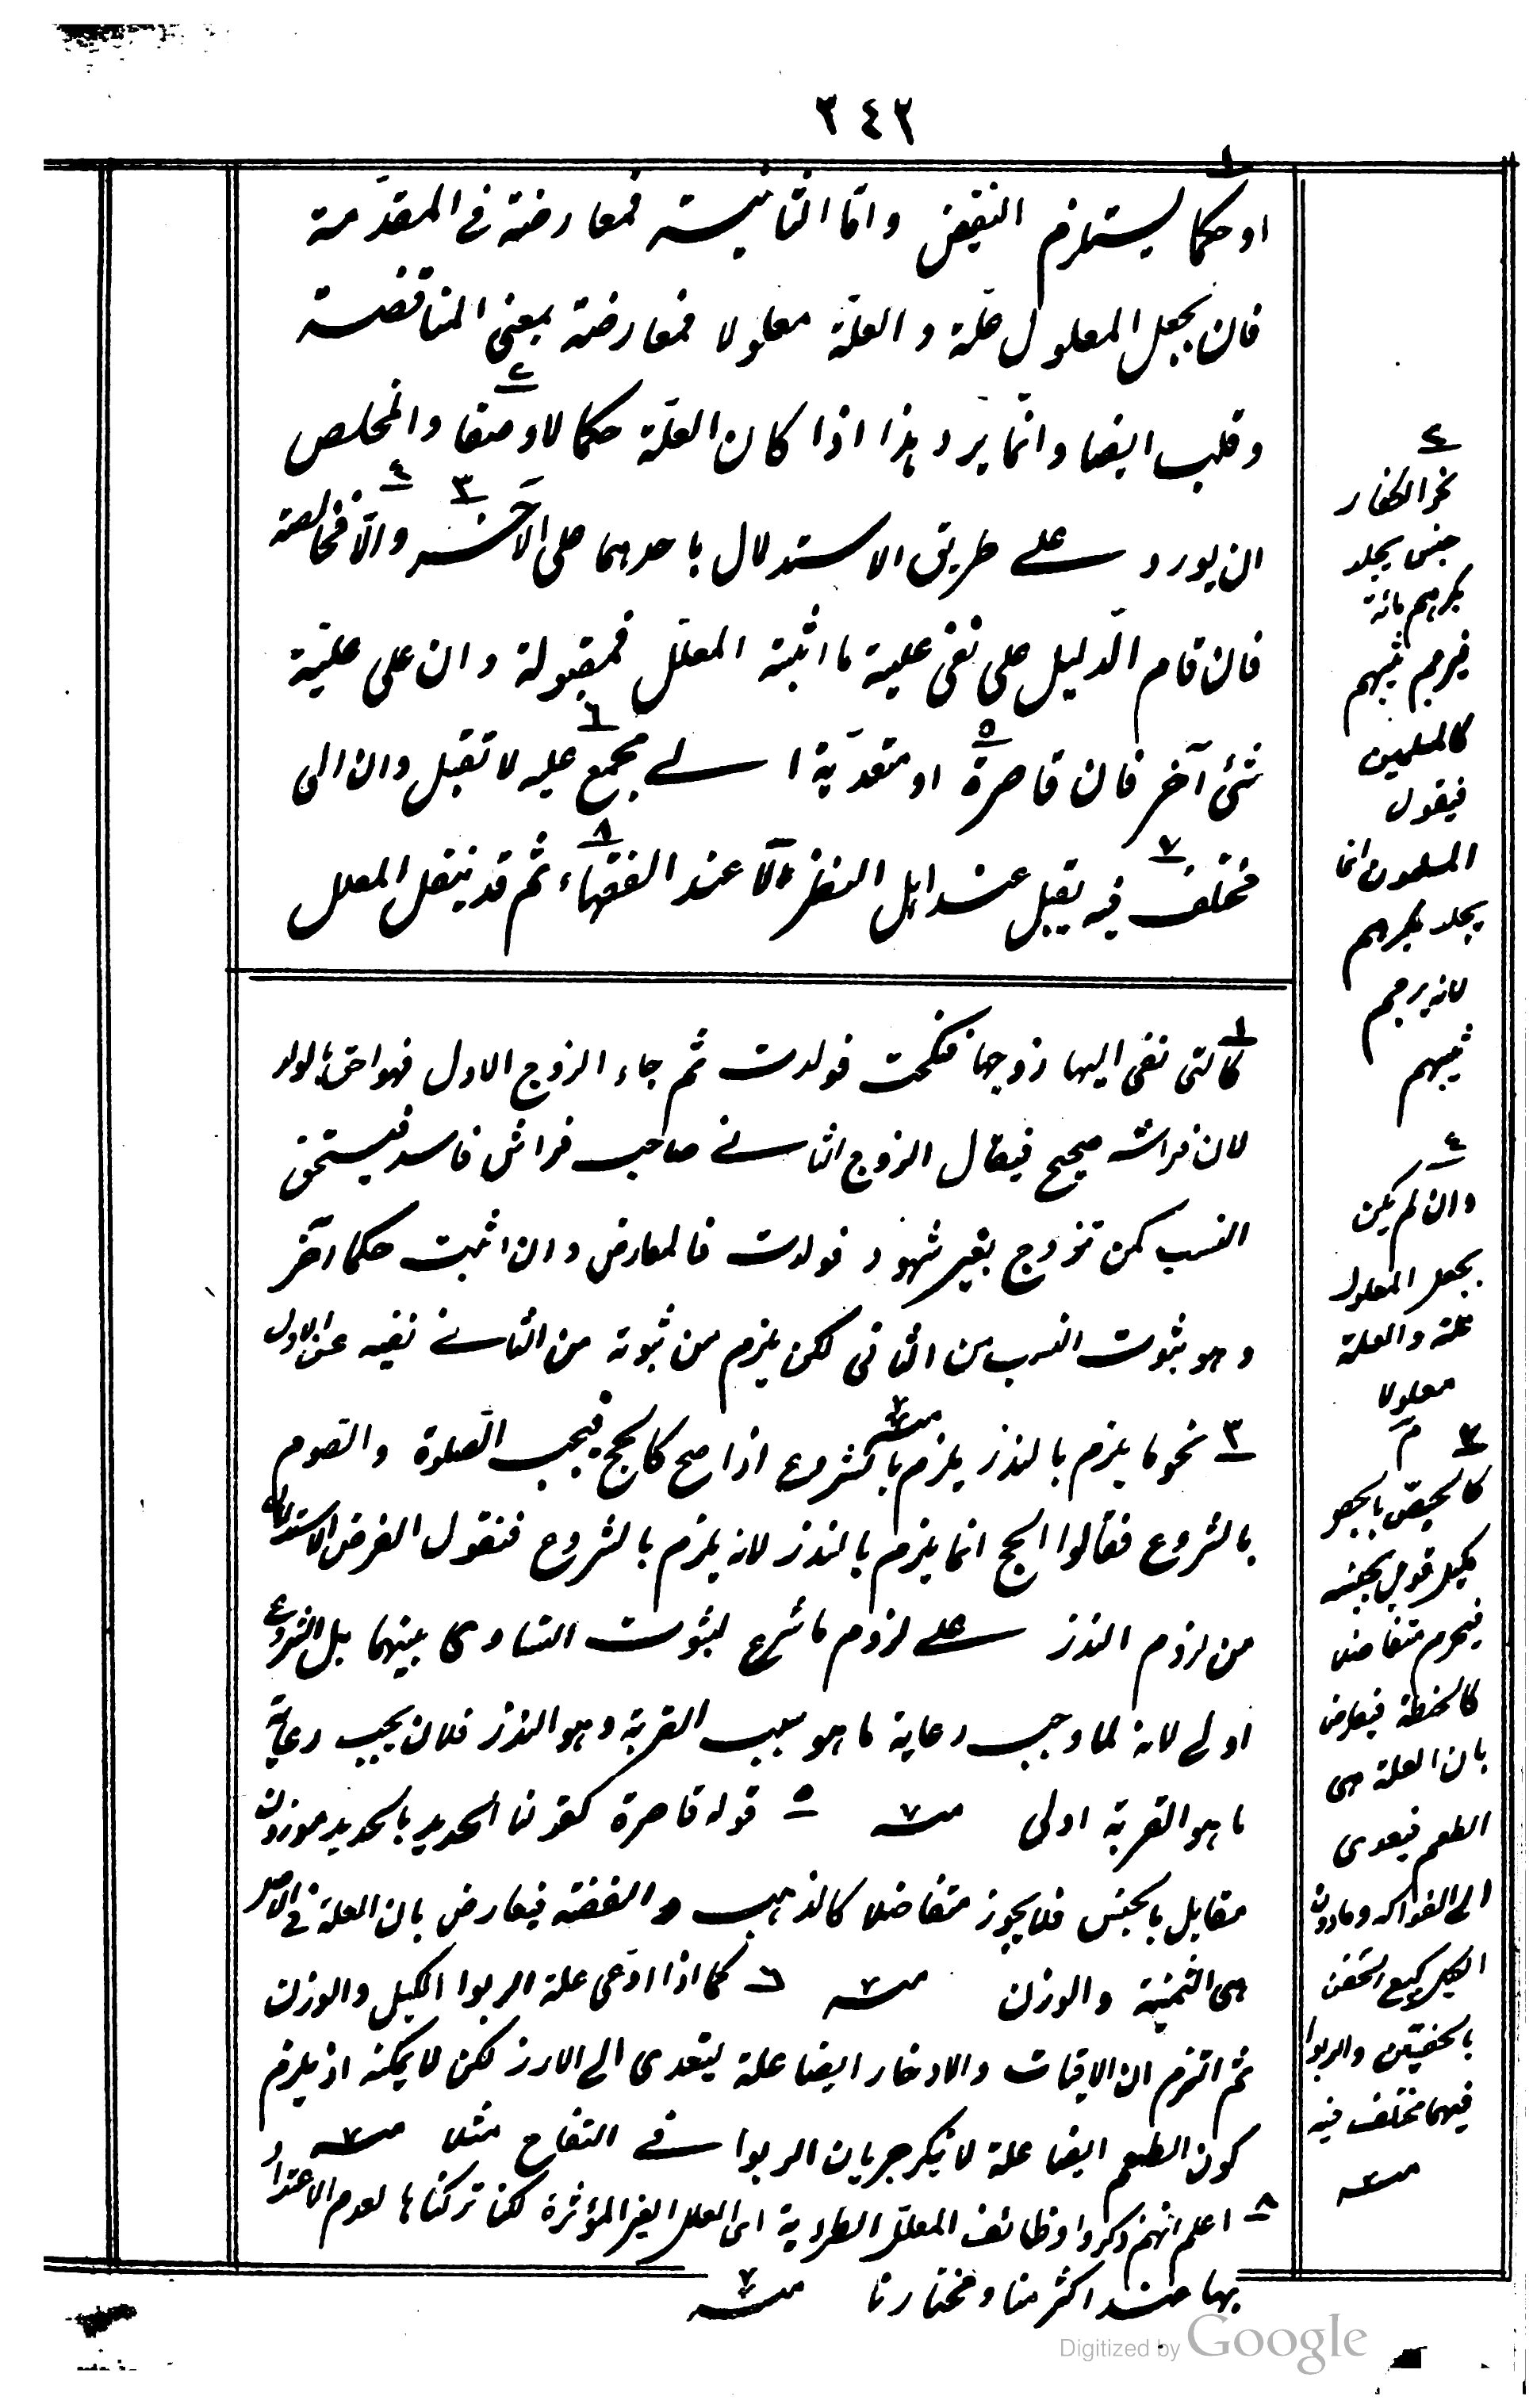 ٣٤٢
١
او حكما يستلزم النقيض وامّا الثّانيـة فمعارضة فى المقدّمة
فان بجعل المعلول علّة والعلّة معلولا فمعارضة بمعنى المناقضـة
٢
وقلب ايضا وانّما يرد هذا اذا كان العلّة حكما لا وصفا والمخلص
٣ ٤
ان يورد علـى طريق الاستدلال باحدهما على الآخَـر والّا فخالصة
فان قام الدّليل على نفى علّية ما اثبته المعلّل فمقبولة وان على علّيّة
٥ ٦
شئ آخر فان قاصرة او متعدّية الـى مجمع عليه لا تقبل وان الى
٧ ٨
مختلف فيه يقبل عند اهل النظر لا عند الفقهاء ثم قد ينتقل المعلل
١ كالتى نعى اليها زوجها فنكحت فولدت ثم جاء الزوج الاول فهو احق بالولد
لان فراشه صحيح فيقال الزوج الثانى صاحب فراش فاسد فيستحق
النسب كمن تزوج بغير شهود فولدت فالمعارض وان اثبت حكما آخر
وهو ثبوت النسب من الثانى لكن يلزم من ثبوته من الثانى نفيه عن الاول
منه
٣ نحو ما يلزم بالنذر يلزم بالشروع اذا صح كالحج فيجب الصّلوة والصّوم
بالشروع فقالوا الحج انما يلزم بالنذر لانه يلزم بالشروع فنقول الغرض الاستدلال
من لزوم النذر علـى لزوم ما شرع لثبوت التساوى بينهما بل الشروع
اولى لانه لما وجب رعاية ما هو سبب القربة وهو النذر فلان يجب رعاية
ما هو القربة اولى منه ٥ قوله قاصرة كقولنا الحديد بالحديد موزون
مقابل بالجنس فلا يجوز متفاضلا كالذهب والفضة فيعارض بان العلة فى الاصل
هى الثمنية والوزن منه ٦ كما اذا ادّعى علة الربوا الكيل والوزن
ثم التزم ان الاقتيات والادخار ايضا علة ليتعدى الى الارز لكن لا يمكنه ان يلزم
كون الطعم ايضا علة لا ينكر جريان الربوا فى التفاح مثلا منه
٨ اعلم انهم ذكروا وظائف المعلّل الطردية اى العلل الغير المؤثرة لكنا تركناها لعدم الاعتداد
بها عند اكثرنا ومختارنا منه
٢
نحو الكفار
جنس يجلد
بكرهم مائة
فيرجم ثيبهم
كالمسلمين
فيقول
المسلمون انما
يجلد بكرهم
لانه يرجم
ثيبهم
٤
وان لم يكن
بجعل المعلول
علة والعلة
معلولا
م
٧
كالجص بالجص
مكيل قوبل بجنسه
فيحرم متفاضلا
كالحنطة فيعارض
بان العلة هى
الطعم فيعدى
الى الفواكه وما دون
الكيل كبيع الحفنة
بالحفنتين والربوا
فيهما مختلف فيه
منه
Digitized by Google